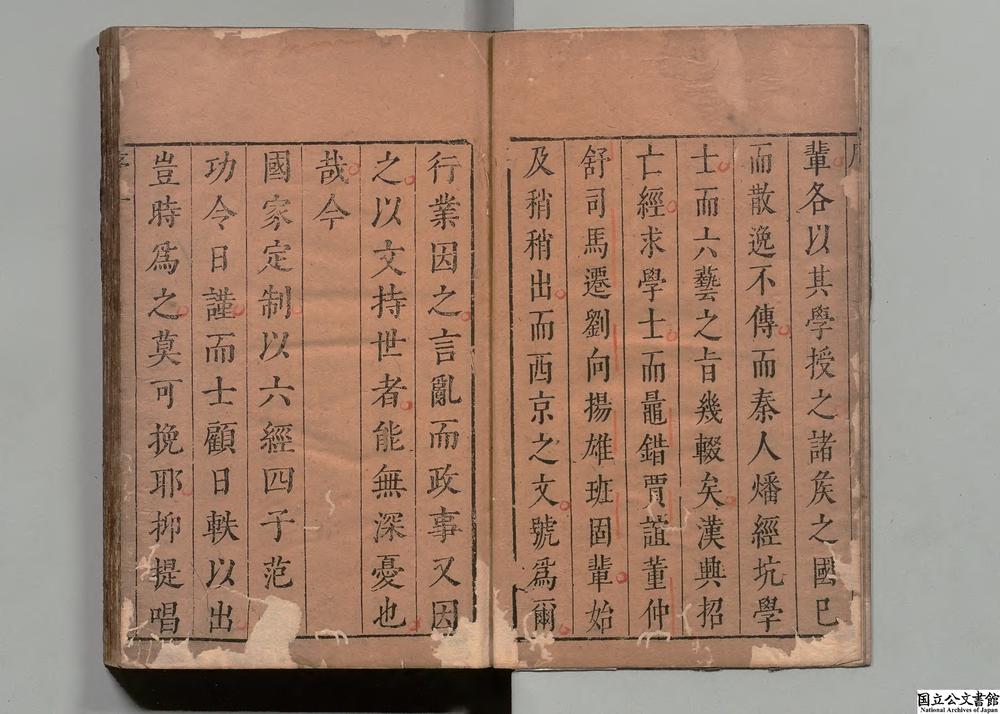 輩各以其學授之諸矦之國已
而散逸不傳而秦人燔經坑學
士而六藝之旨幾輟矣漢興招
亡經求學士而鼂錯賈誼董仲
舒司馬遷劉向揚雄班固輩始
及稍稍出而西京之文號爲爾
行業因之言亂而政事又因
之以文持世者能無深憂也
哉今
國家定制以六經四子范
功令日謹而士顧日軼以出
豈時爲之莫可挽耶抑提唱
国立公文書館
National Archives of Japan